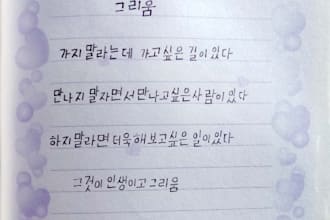 그리움
가지 말라는데 가고 싶은 길이 있다
만나지 말자면서 만나고 싶은 사람이 있다
하지 말라면 더욱 해 보고 싶은 일이 있다
그것이 인생이고 그리움